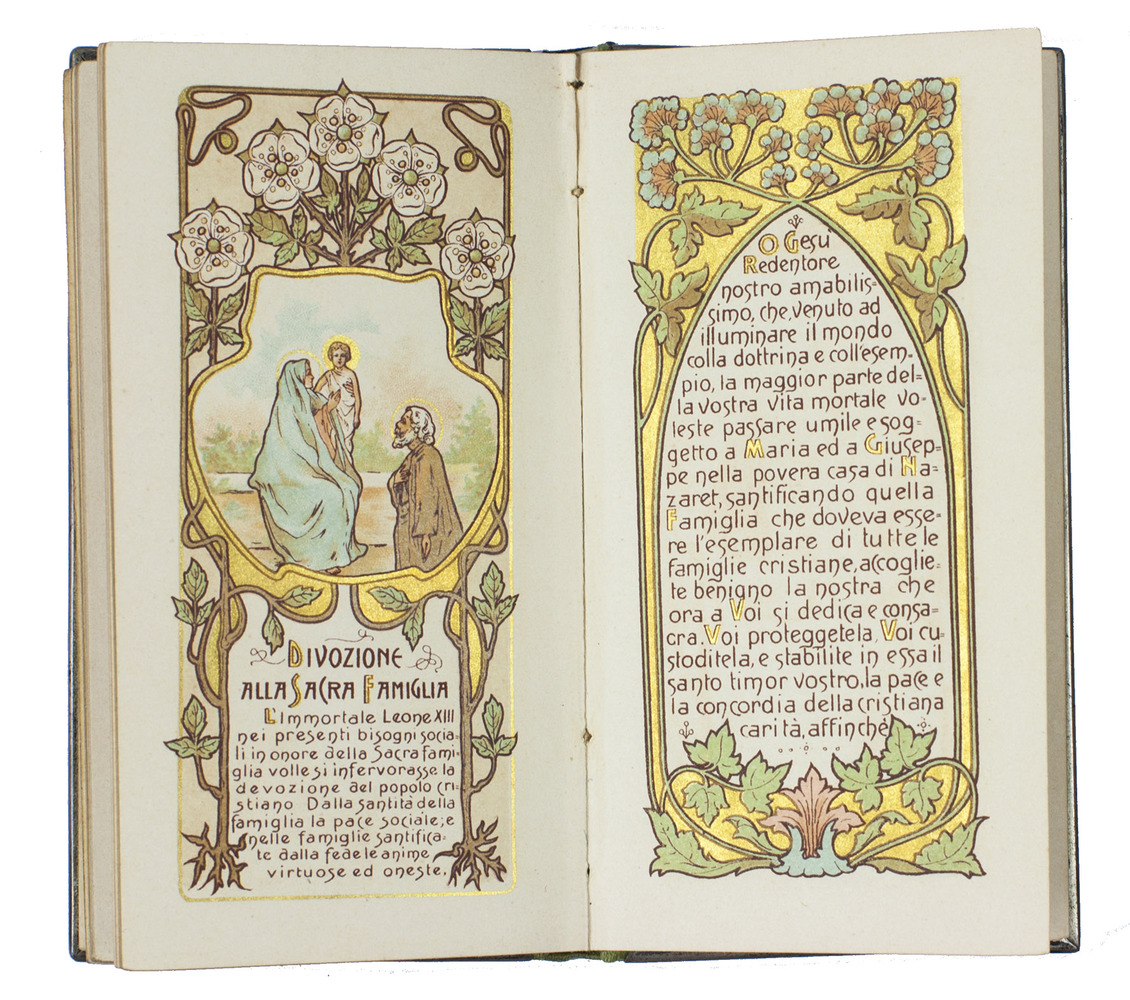 DIVOZIONE
ALLA SACRA FAMIGLIA
L'Immortale Leone XIII
nei presenti bisogni socia-
li in onore della Sacra fami-
glia volle si infervorasse la
devozione del popolo cri-
stiano Dalla santità della
famiglia la pace sociale; e
nelle famiglie santifica-
te dalla fede le anime
virtuose ed oneste.
O Gesù
Redentore
nostro amabilis=
simo, che, venuto ad
illuminare il mondo
colla dottrina e coll'esem=
pio, la maggior parte del=
la vostra vita mortale vo=
leste passare umile e sog=
getto a Maria ed a Giusep=
pe nella povera casa di Na=
zaret, santificando quella
Famiglia che doveva esse=
re l'esemplare di tutte le
famiglie cristiane, accoglie=
te benigno la nostra che
ora a Voi si dedica e consa=
cra. Voi proteggetela, Voi cu=
stoditela, e stabilite in essa il
santo timor vostro, la pace e
la concordia della cristiana
carità, affinchè